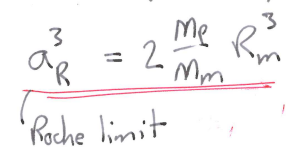 a_R^3 = 2 M_P/M_m R_m^3
Roche limit